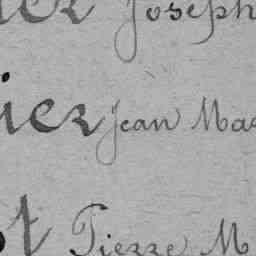 Joseph
ier Jean Mar
t Pierre M